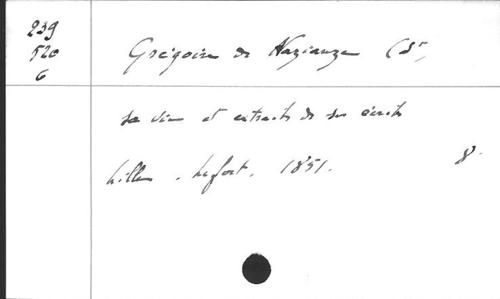 239
520
6
Grégoire de Nazianze (St,
sa vie et extraits de ses écrits
Lille. Lefort. 1851. 8.